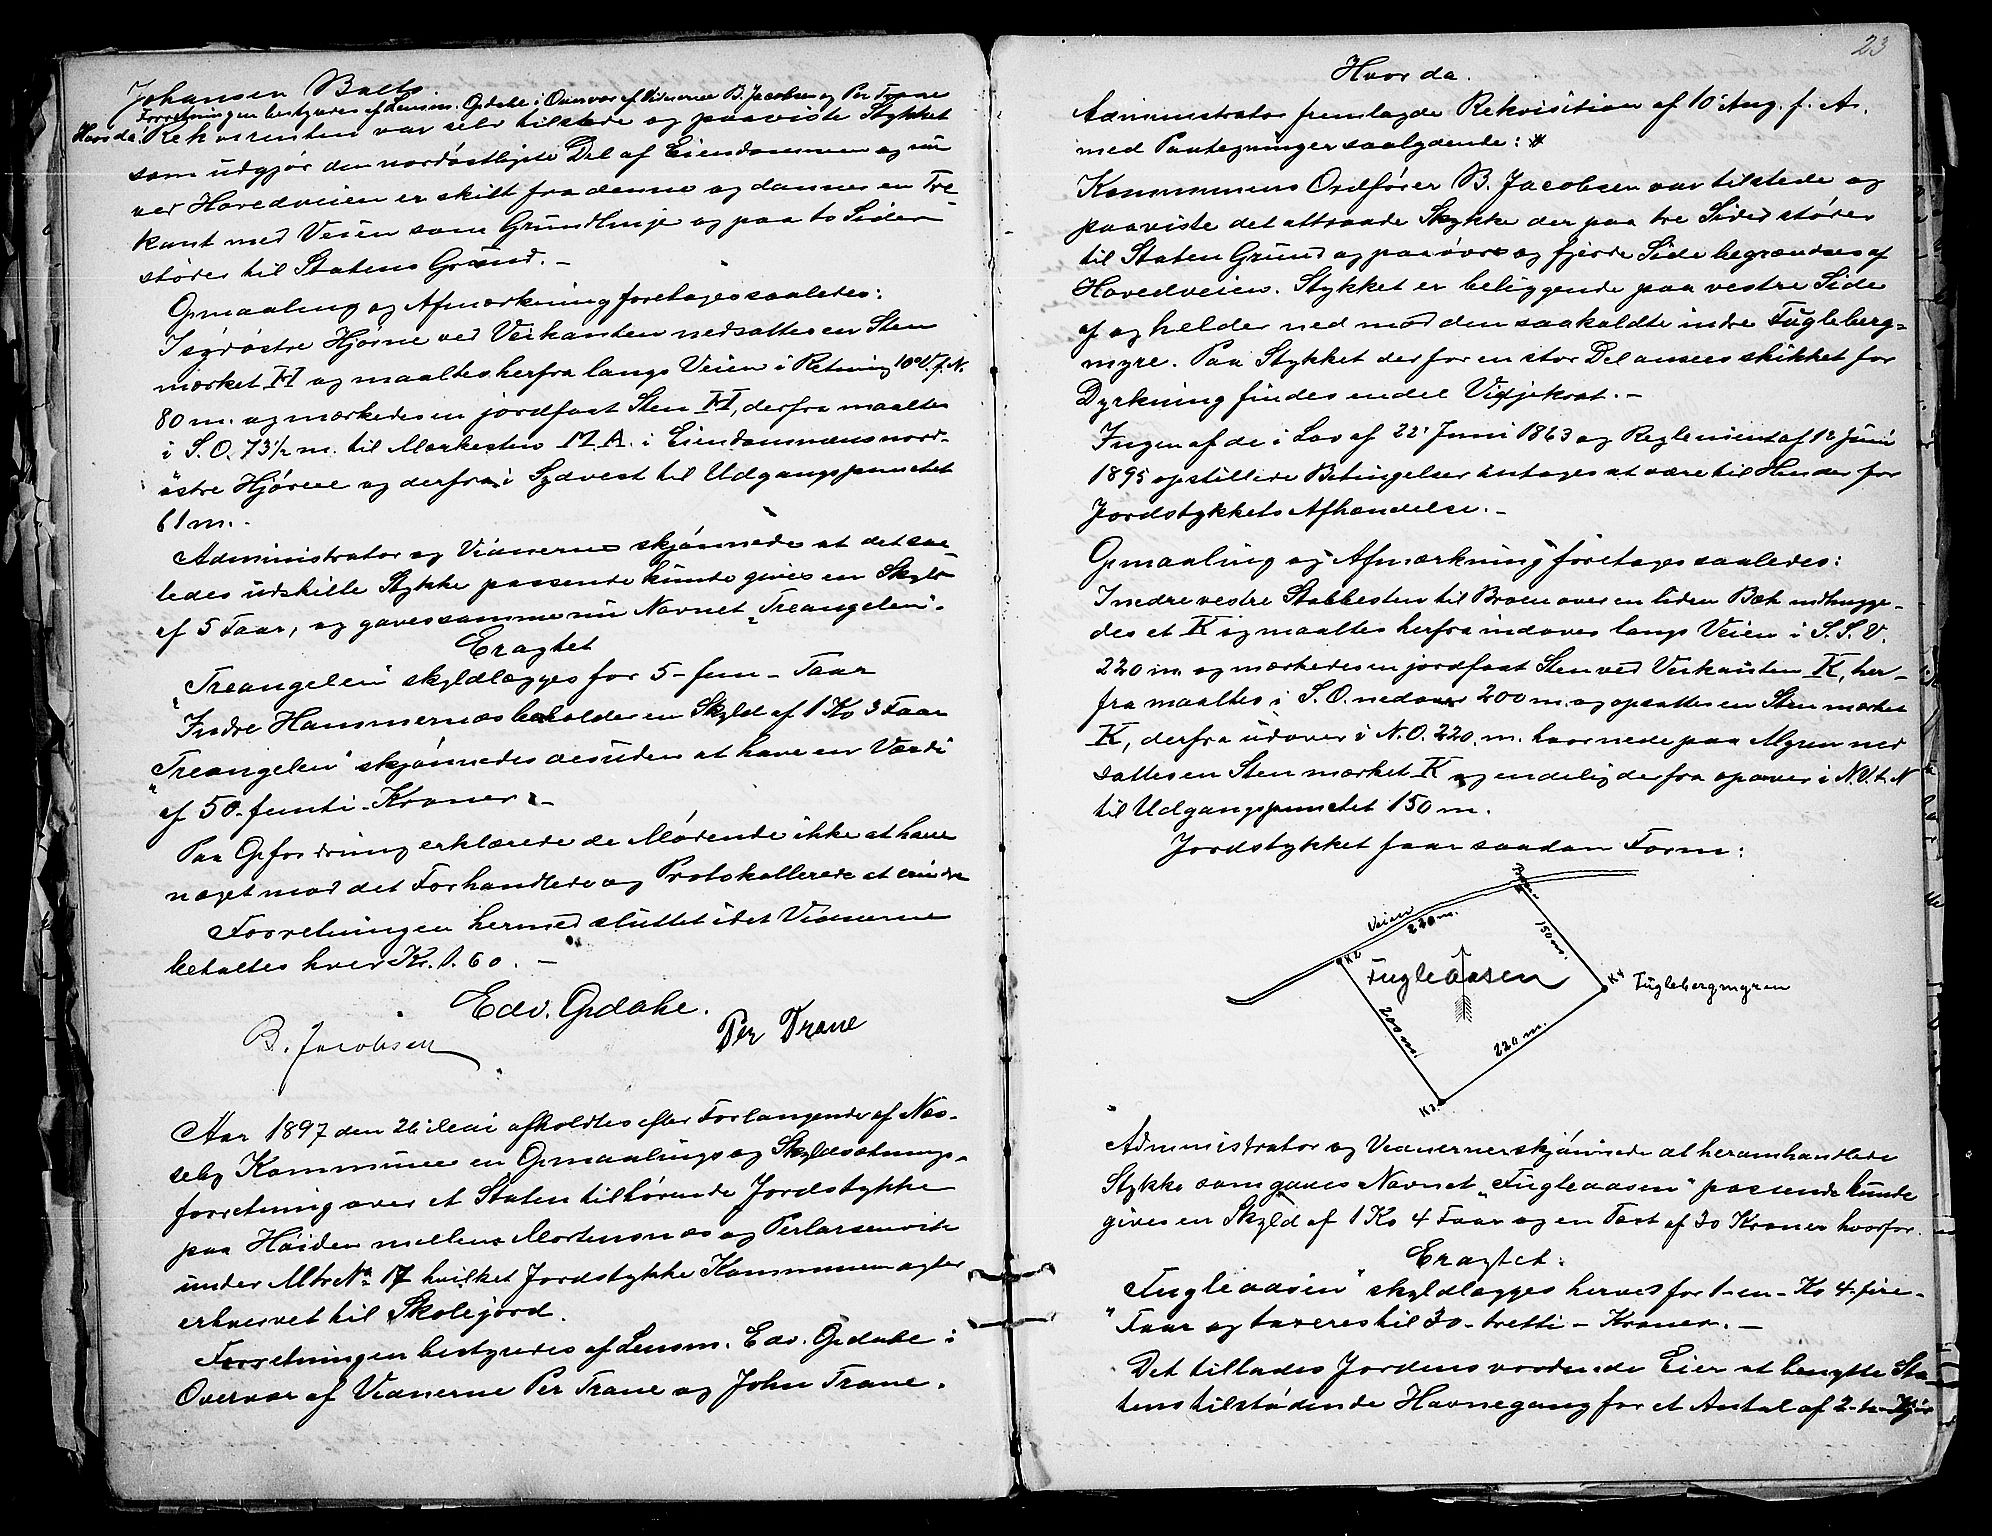 Johansen Balto.
Forretningen bestyredes af Lensm. Opdahl i Overvær af Vidnerne B. Jacobsen og Per Trane
Hvor da Rekvirenten var selv tilstede og paaviste Stykket
som udgjør den nordøstligste Del af Eiendommen og nu
ved Hovedveien er skilt fra denne og danner en Tre-
kant med Veien som Grundlinje og paa to Sider
støder til Statens Grund. –
Opmaaling og Afmærkning foretoges saaledes:
I sydøstre Hjørne ved Veikanten nedsattes en Sten
mærket H og maaltes herfra langs Veien i Retning 10° V. f. N.
80 m. og mærkedes en jordfast Sten H, derfra maaltes
i S.O. 73½ m. til Merkesten M A. i Eiendommens nord-
østre Hjørne og derfra i Sydvest til Udgangspunctet
61 m. -
Administrator og Vidnerne skjønnede at det saa-
ledes udskilte Stykke passende kunde gives en Skyld
af 5 Faar, og gaves samme nu Navnet „Treangelen".
Eragtet
„Treangelen" skyldlægges for 5 - fem - Faar
Indre Hammernæs beholder en Skyld af 1 Ko 3 Faar
„Treangelen" skjønnedes desuden at have en Værdi
af 50 - femti - Kroner. –
Paa Opfordring erklærede de Mødende ikke at have
noget mod det Forhandlede og Protokollerede at erindre
Forretningen hermed sluttet idet Vidnerne
betaltes hver Kr. 1.60. –
Edv. Opdahl.
B. Jacobsen Per Trane
Aar 1897 den 26 Mai afholdtes efter Forlangende af Næs-
seby Kommune en Opmaalings og Skyldsætnings-
forretning over et Staten tilhørende Jordstykke
paa Høiden mellem Mortensnæs og Perlarsenvik
under Mtr No 17 hvilket Jordstykke Kommunen agter
erhvervet til Skolejord.
Forretningen bestyredes af Lensm. Edv. Opdahl i
Overvær af Vidnerne Per Trane og John Trane.
23
Hvor da.
Administrator fremlagde Rekvisition af 10 Aug. f. A.
med Paategninger saalydende: #
Kommunens Ordfører B. Jacobsen var tilstede og
paaviste det attraade Stykke der paa tre Sider støder
til Staten Grund og paa øvre og fjerde Side begrændses af
Hovedveien. Stykket er beliggende paa vestre Side
af og helder ned mod den saakaldte indre Fugleberg-
myre. Paa Stykket der for en stor Del ansees skikket for
Dyrkning findes endel Vidjekrat. –
Ingen af de i Lov af 22 Juni 1863 og Reglement af 1 Juni
1895 opstillede Betingelser antages at være til Hinder for
Jordstykkets Afhændelse. –
Opmaaling og Afmærkning foretoges saaledes:
I nedre vestre Stabbesten til Broen over en liden Bæk indhugge-
des et K og maaltes herfra indover langs Veien i S.S.V.
220 m. og mærkedes en jordfast Sten ved Veikanten K, her-
fra maaltes i S.O. nedover 200 m. og opsattes en Sten mærket
K, derfra udover i N.O. 220 m. hvor nede paa Myren ned
sattes en Sten mærket K og endelig derfra opover i N.V.t.N
til Udgangspunctet 150 m.
Jordstykket faar saadan Form:
Veien
220 m.
150 m.
K2
Fugleaasen
K4
Fuglebergmyren
200 m.
220 m.
K3
Administrator og Vidnerne skjønnede at heromhandlede
Stykke som gaves Navnet „Fugleaasen" passende kunde
gives en Skyld af 1 Ko 4 Faar og en Taxt af 30 Kroner hvorfor
Eragtet:
„Fugleaasen" skyldlægges herved for 1 - en - Ko 4 - fire -
Faar og taxeres til 30 - tretti - Kroner. –
Det tillades Jordens vordende Eier at benytte Sta-
tens tilstødende Havnegang for et Antal af 2 - to - Kjør